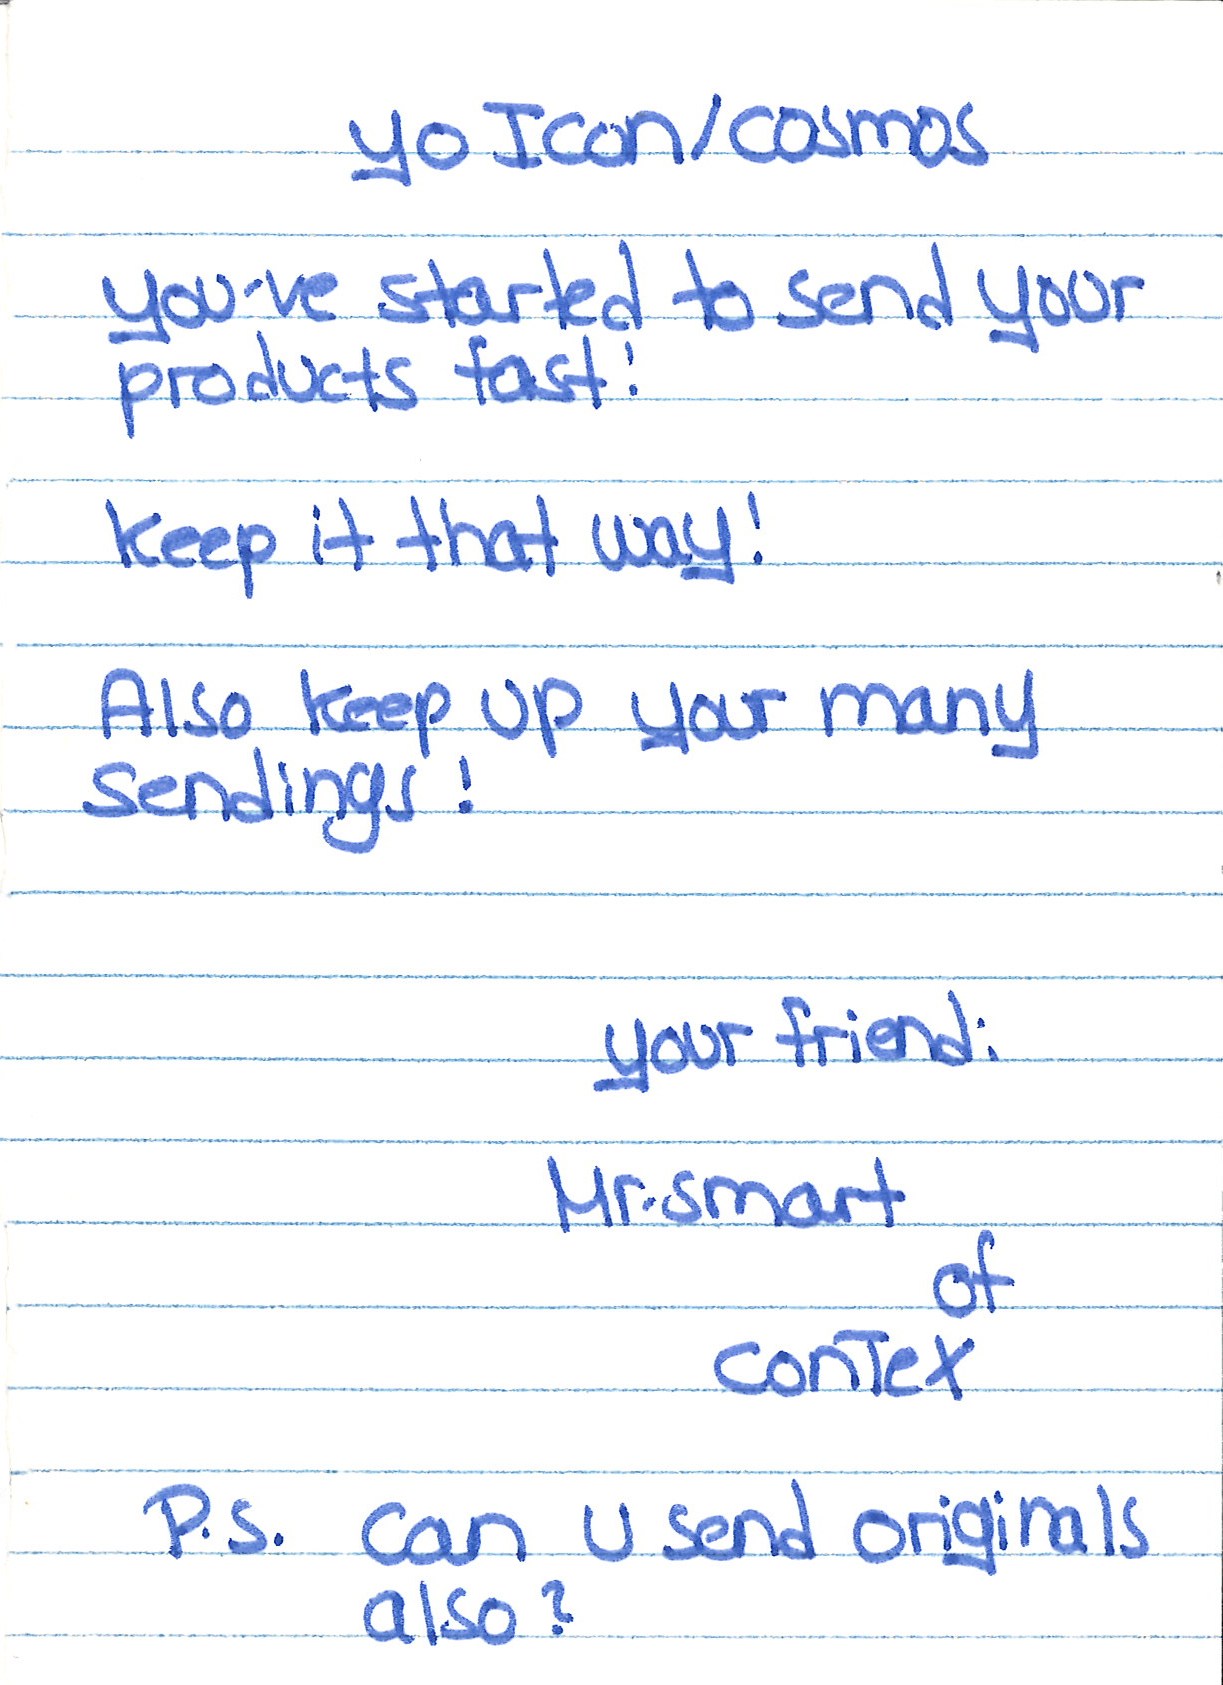 yo Icon/cosmos
you've started to send your
products fast!
keep it that way!
Also keep up your many
sendings!
your friend:
Mr.smart
of
conTeX
P.S. can U send originals
also?